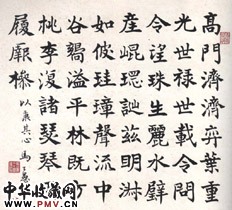 高門濟濟弈葉重
光世禄世載令問
令望珠生麗水璧
產崐誕茲明淑
如彼珪璋聲流中
谷譽溢平林既
桃李復諧琴
履厥操 以康其心 馬
中华收藏网
WWW.PMV.CN